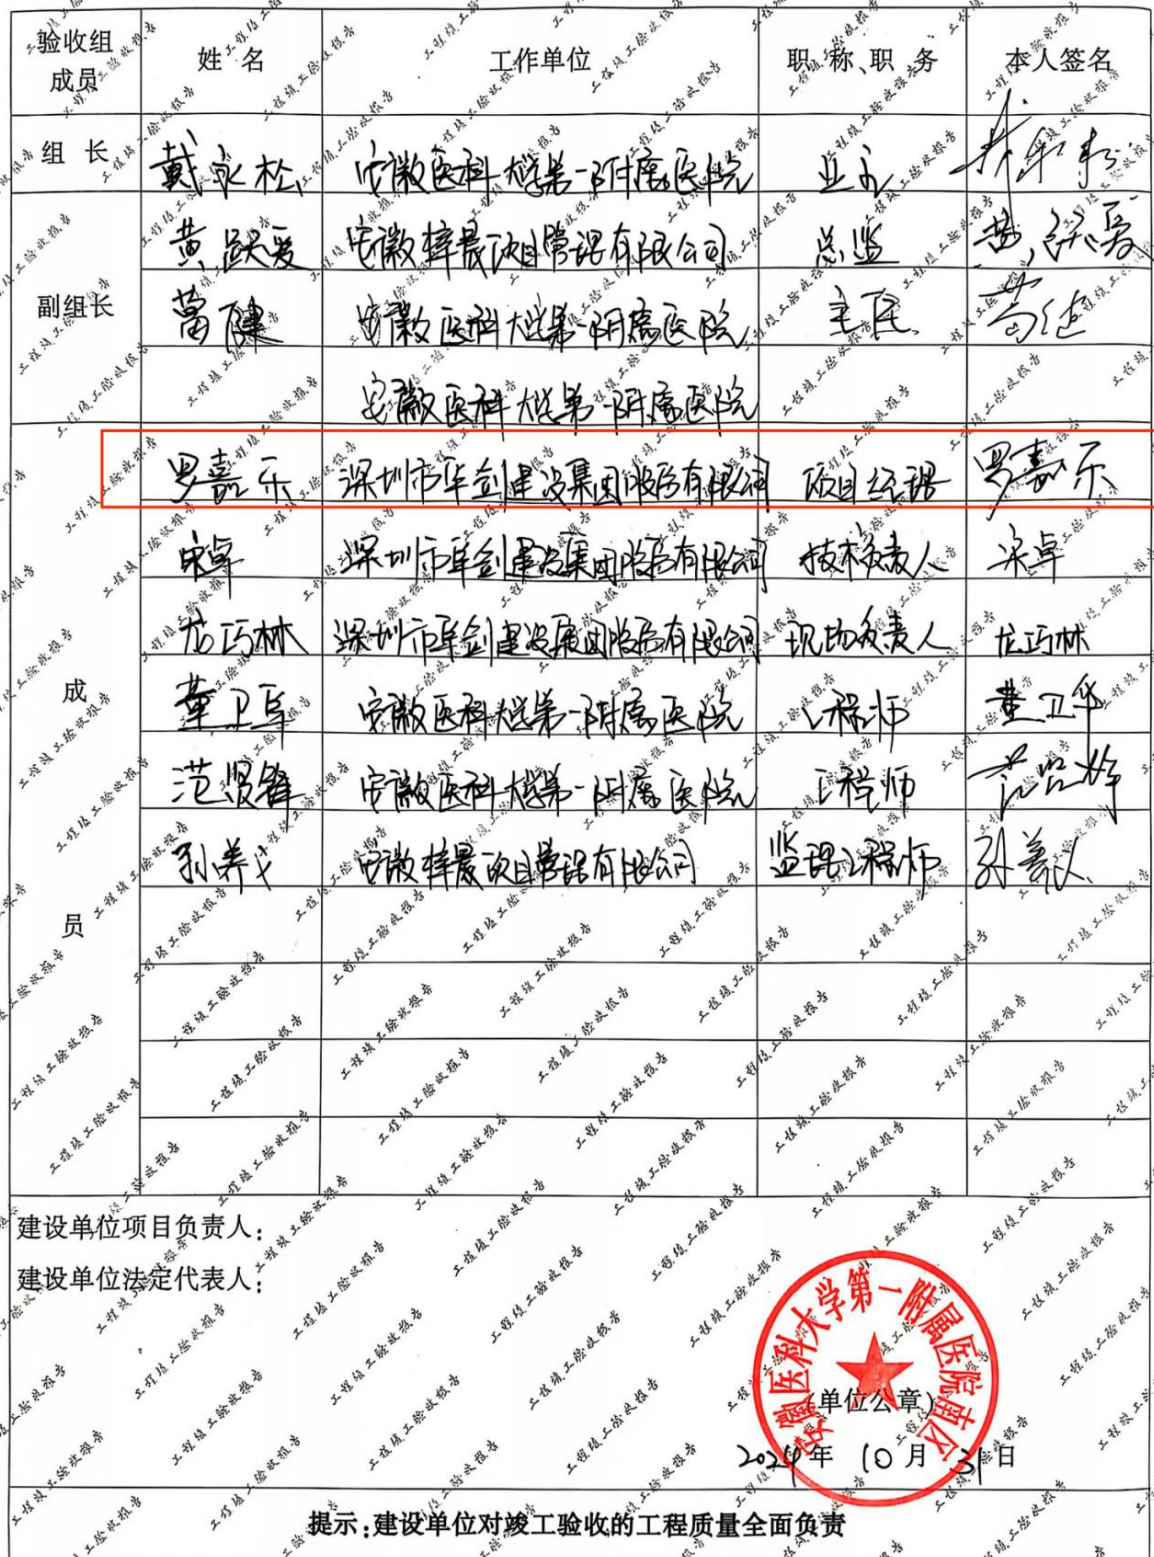 验收组成员 姓 名 工作单位 职 称、职 务 本人签名
组 长 戴永松 安徽医科大学第一附属医院 业主
副组长 黄跃爱 安徽梓晨项目管理有限公司 总监 黄跃爱
葛健 安徽医科大学第一附属医院 葛健
安徽医科大学第一附属医院
成员 罗嘉乐 深圳市华剑建设集团股份有限公司 项目经理 罗嘉乐
深圳市华剑建设集团股份有限公司 技术负责人
龙巧林 深圳市华剑建设集团股份有限公司 现场负责人 龙巧林
董卫华 安徽医科大学第一附属医院 工程师 董卫华
范贤锋 安徽医科大学第一附属医院 工程师
安徽梓晨项目管理有限公司 监理工程师
建设单位项目负责人：
建设单位法定代表人：
安徽医科大学第一附属医院南区
（单位公章）
2024年 10月 31日
提示：建设单位对竣工验收的工程质量全面负责
工程竣工验收报告